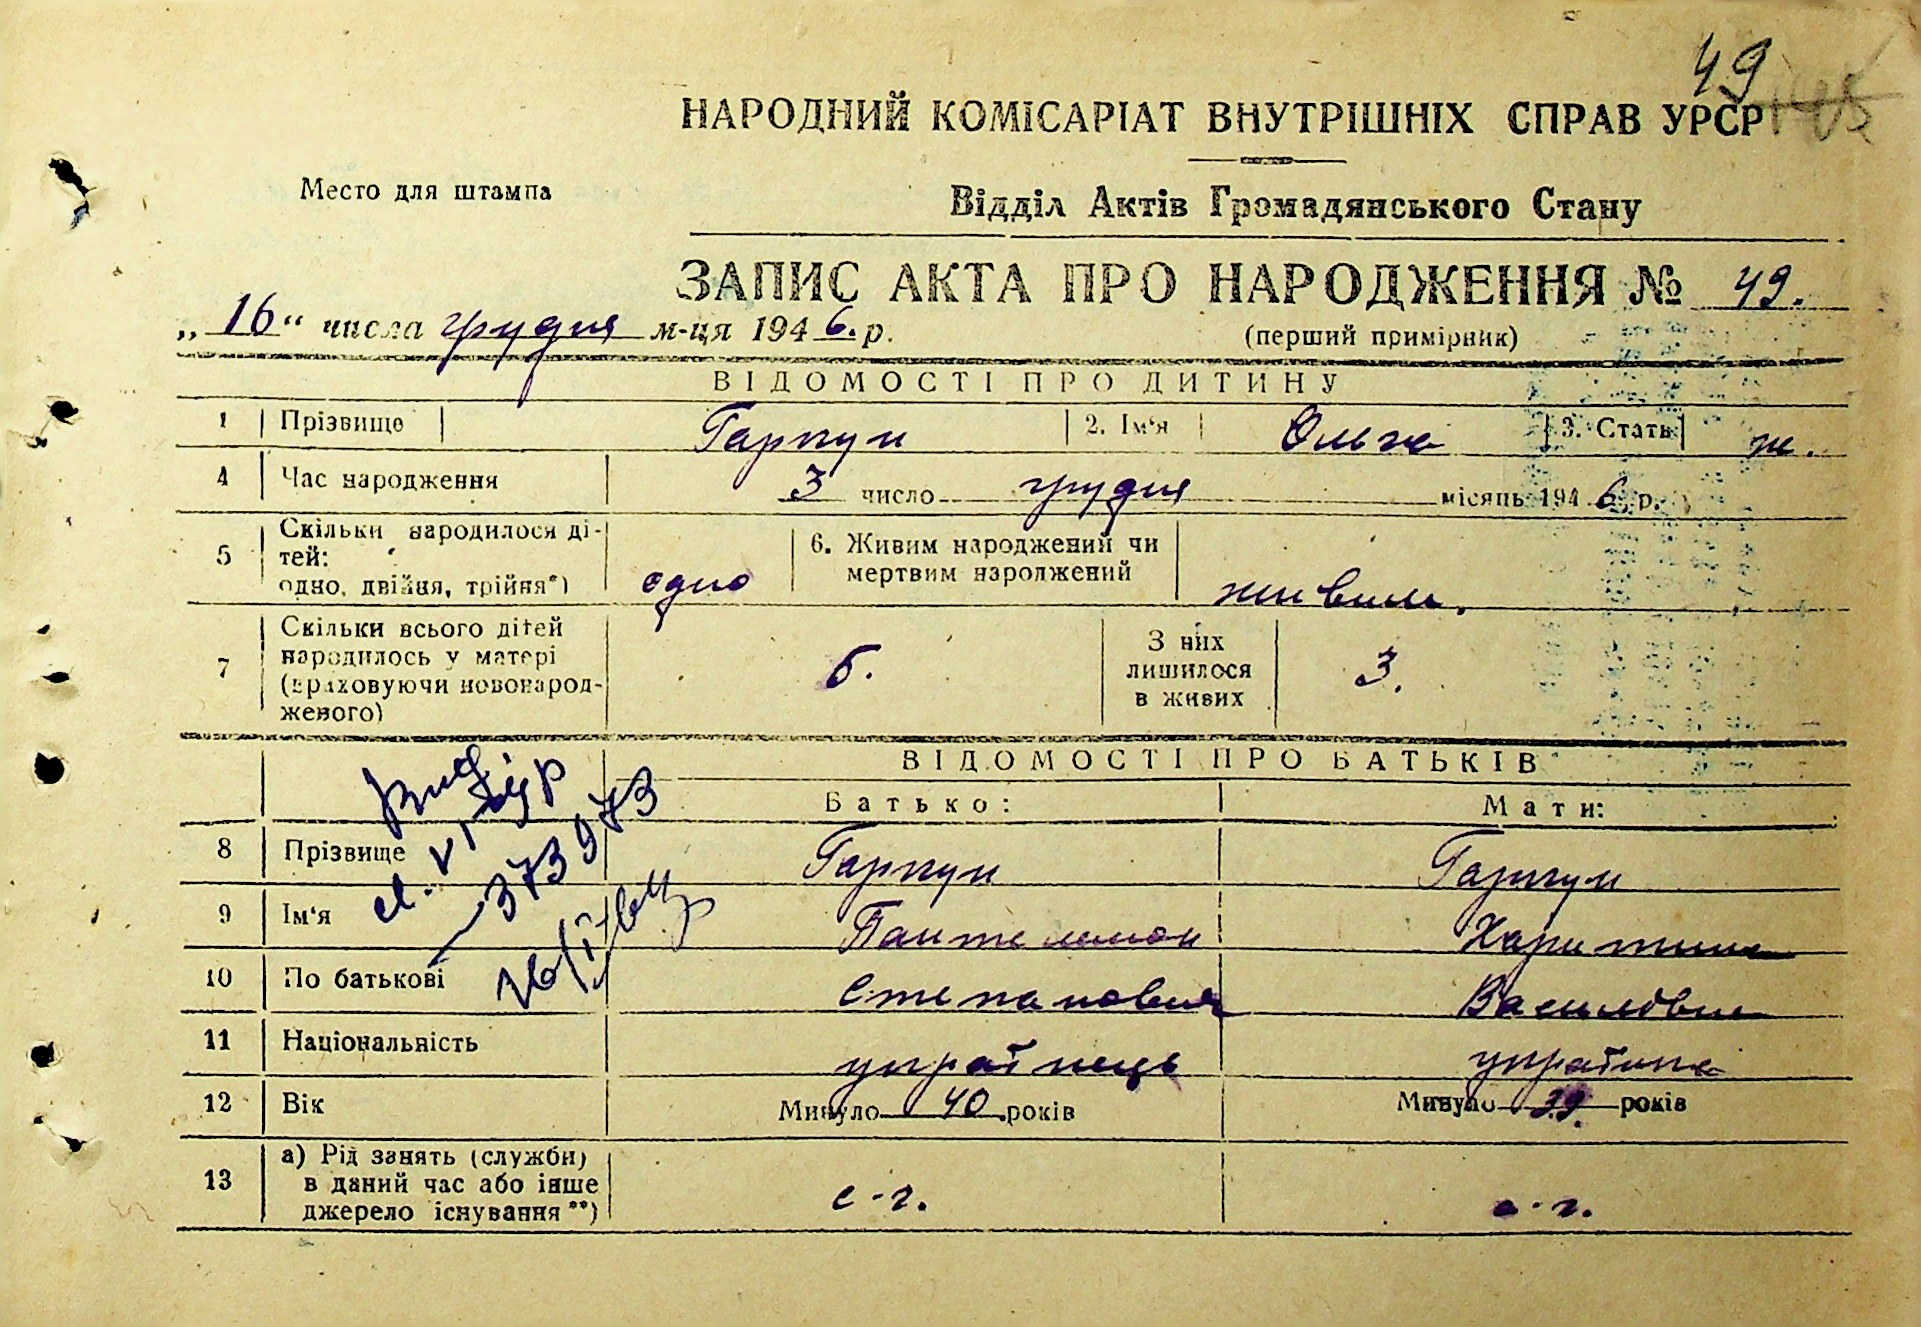 49
НАРОДНИЙ КОМІСАРІАТ ВНУТРІШНІХ СПРАВ УРСР
Место для штампа
Відділ Актів Громадянського Стану
ЗАПИС АКТА ПРО НАРОДЖЕННЯ № 49.
„16“ числа грудня м-ця 1946. р.
(перший примірник)
ВІДОМОСТІ ПРО ДИТИНУ
1 Прізвище Гарпун 2. Ім‘я Ольга 3. Стать ж.
4 Час народження 3 число грудня місяць 1946 р.
5 Скільки народилося ді-
тей:
одно, двійня, трійня*) одно
6. Живим народжений чи
мертвим народжений живим.
7 Скільки всього дітей
народилось у матері
(враховуючи новонарод-
женого) 6.
З них
лишилося
в живих 3.
ВІДОМОСТІ ПРО БАТЬКІВ
Батько: Мати:
8 Прізвище Гарпун Гарпун
9 Ім‘я Пантелемон Харитина
10 По батькові Степанович Василівна
11 Національність українець українка
12 Вік Минуло 40 років Минуло 39. років
13 а) Рід занять (служби)
в даний час або інше
джерело існування**) с-г. с-г.
373973